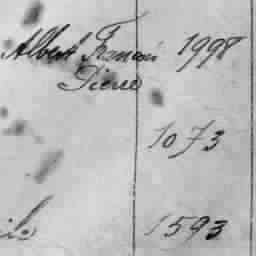 Albert Francois 1998
Pierre
1073
1593